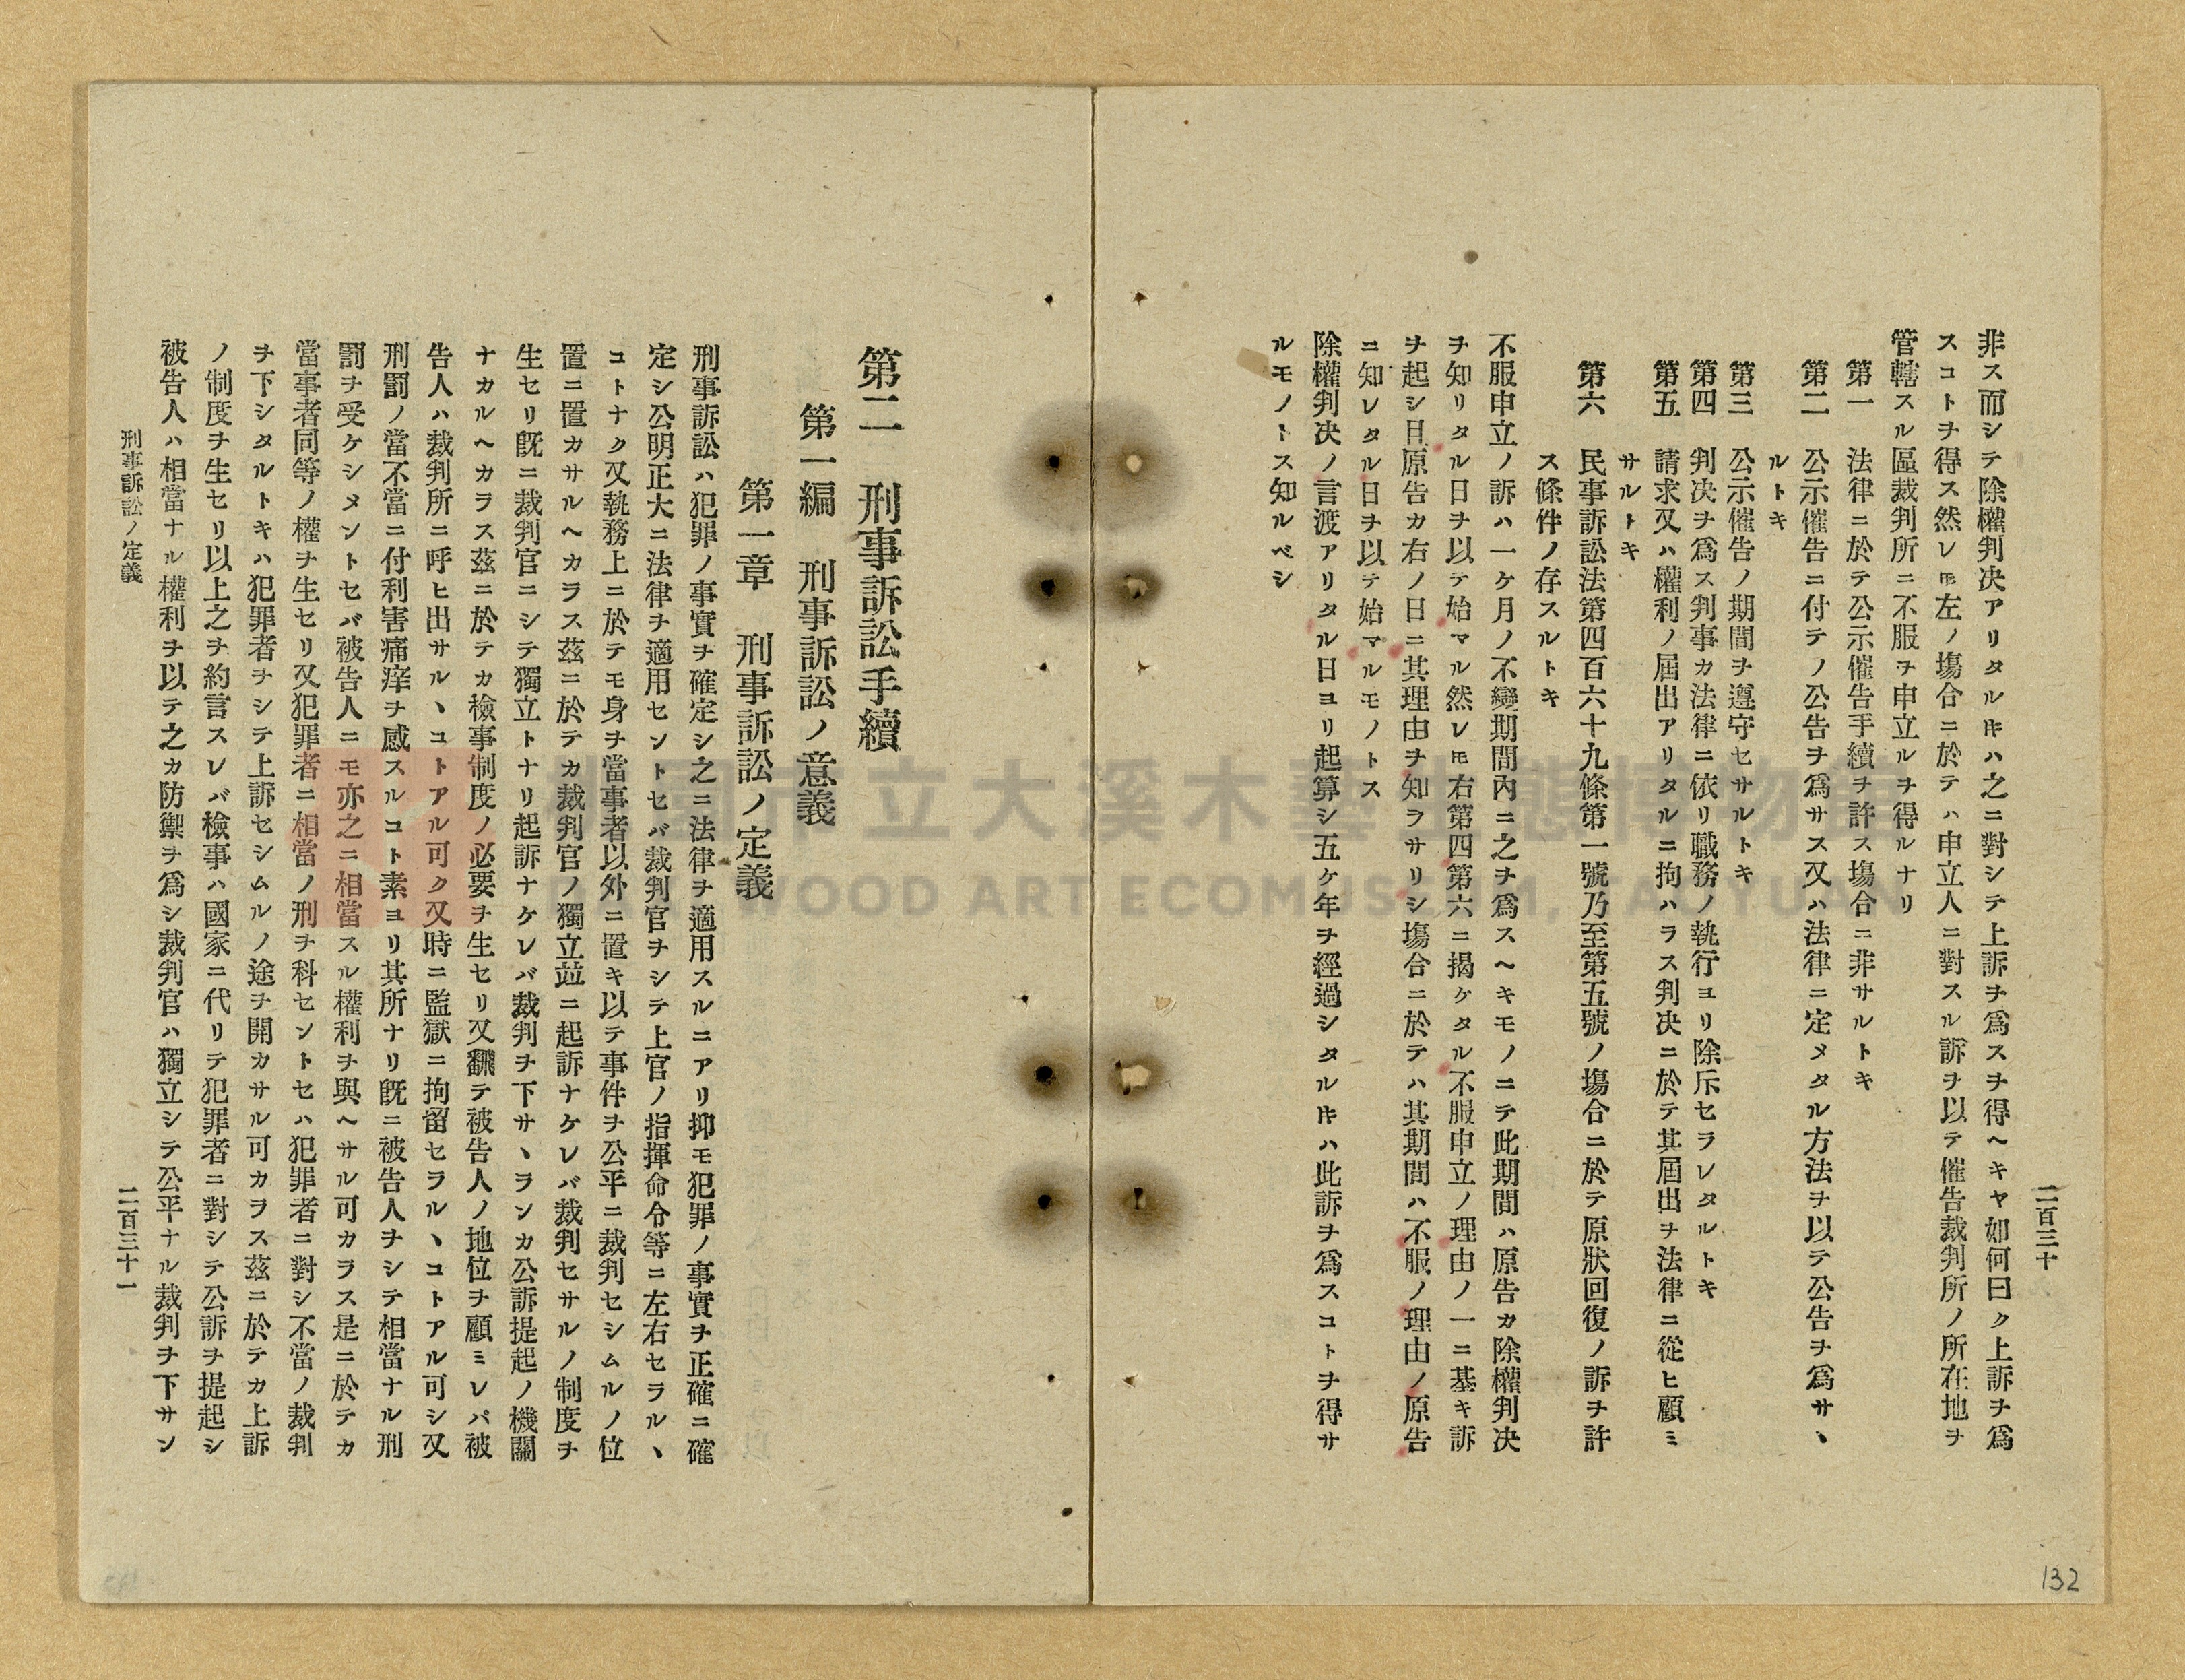 二百三十
非ス而シテ除權判决アリタルㇳキハ之ニ對シテ上訴ヲ爲スヲ得ヘキヤ如何曰ク上訴ヲ爲
スコトヲ得ス然レㇳモ左ノ塲合ニ於テハ申立人ニ對スル訴ヲ以テ催告裁判所ノ所在地ヲ
管轄スル區裁判所ニ不服ヲ申立ルヲ得ルナリ
第一 法律ニ於テ公示催告手續ヲ許ス塲合ニ非サルトキ
第二 公示催告ニ付テノ公告ヲ爲サス又ハ法律ニ定メタル方法ヲ以テ公告ヲ爲サヽ
ルトキ
第三 公示催告ノ期間ヲ遵守セサルトキ
第四 判决ヲ爲ス判事カ法律ニ依リ職務ノ執行ヨリ除斥セラレタルトキ
第五 請求又ハ權利ノ屆出アリタルニ拘ハラス判决ニ於テ其屆出ヲ法律ニ從ヒ顧ミ
サルトキ
第六 民事訴訟法第四百六十九條第一號乃至第五號ノ塲合ニ於テ原狀回復ノ訴ヲ許
ス條件ノ存スルトキ
不服申立ノ訴ハ一ケ月ノ不變期間内ニ之ヲ爲スヘキモノニテ此期間ハ原告カ除權判决
ヲ知リタル日ヲ以テ始マル然レㇳモ右第四第六ニ揭ケタル不服申立ノ理由ノ一ニ基キ訴
ヲ起シ且原告カ右ノ日ニ其理由ヲ知ラサリシ塲合ニ於テハ其期間ハ不服ノ理由ノ原告
ニ知レタル日ヲ以テ始マルモノトス
除權判决ノ言渡アリタル日ヨリ起算シ五ケ年ヲ經過シタルㇳキハ此訴ヲ爲スコトヲ得サ
ルモノトス知ルベシ
132
第二 刑事訴訟手續
第一編 刑事訴訟ノ意義
第一章 刑事訴訟ノ定義
刑事訴訟ハ犯罪ノ事實ヲ確定シ之ニ法律ヲ適用スルニアリ抑モ犯罪ノ事實ヲ正確ニ確
定シ公明正大ニ法律ヲ適用セントセバ裁判官ヲシテ上官ノ指揮命令等ニ左右セラルヽ
コトナク又執務上ニ於テモ身ヲ當事者以外ニ置キ以テ事件ヲ公平ニ裁判セシムルノ位
置ニ置カサルヘカラス茲ニ於テカ裁判官ノ獨立竝ニ起訴ナケレバ裁判セサルノ制度ヲ
生セリ既ニ裁判官ニシテ獨立トナリ起訴ナケレバ裁判ヲ下サヽランカ公訴提起ノ機關
ナカルヘカラス茲ニ於テカ檢事制度ノ必要ヲ生セリ又飜テ被告人ノ地位ヲ顧ミレバ被
告人ハ裁判所ニ呼ヒ出サルヽコトアル可ク又時ニ監獄ニ拘留セラルヽコトアル可シ又
刑罰ノ當不當ニ付利害痛痒ヲ感スルコト素ヨリ其所ナリ既ニ被告人ヲシテ相當ナル刑
罰ヲ受ケシメントセバ被告人ニモ亦之ニ相當スル權利ヲ與ヘサル可カラス是ニ於テカ
當事者同等ノ權ヲ生セリ又犯罪者ニ相當ノ刑ヲ科セントセハ犯罪者ニ對シ不當ノ裁判
ヲ下シタルトキハ犯罪者ヲシテ上訴セシムルノ途ヲ開カサル可カラス茲ニ於テカ上訴
ノ制度ヲ生セリ以上之ヲ約言スレバ檢事ハ國家ニ代リテ犯罪者ニ對シテ公訴ヲ提起シ
被告人ハ相當ナル權利ヲ以テ之カ防禦ヲ爲シ裁判官ハ獨立シテ公平ナル裁判ヲ下サン
刑事訴訟ノ定義
二百三十一